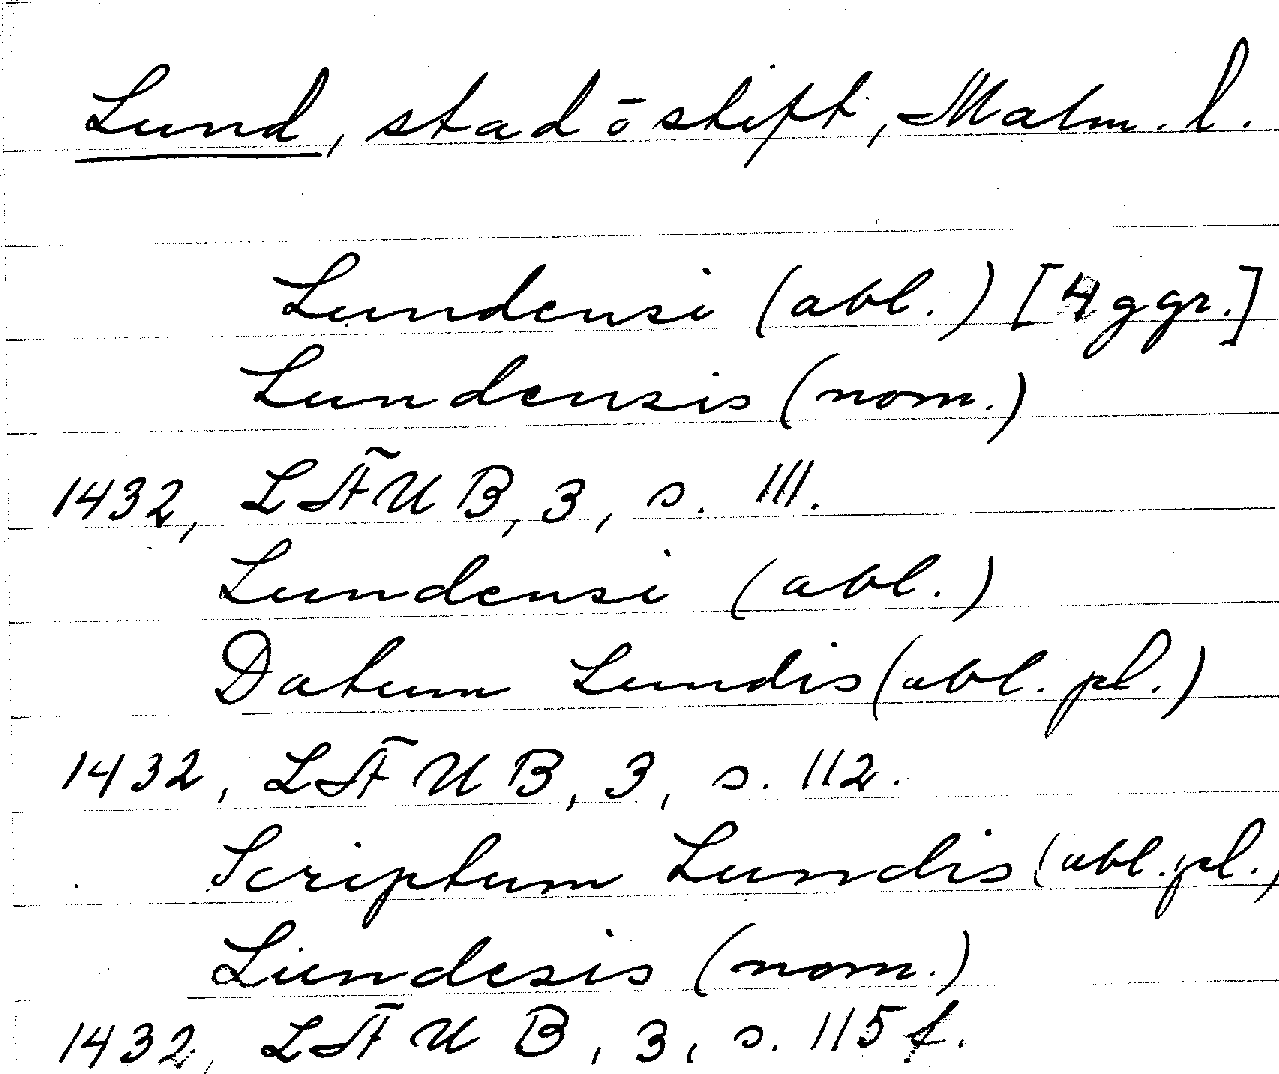 Lund, stad ō stift, Malm. l.
Lundensi (abl.) [4 ggr.]
Lundensis (nom.)
1432, LÄUB, 3, s. 111.
Lundensi (abl.)
Datum Lundis (abl. pl.)
1432, LÄUB, 3, s. 112.
Scriptum Lundis (abl. pl.)
Lundesis (nom.)
1432, LÄUB, 3, s. 115 f.